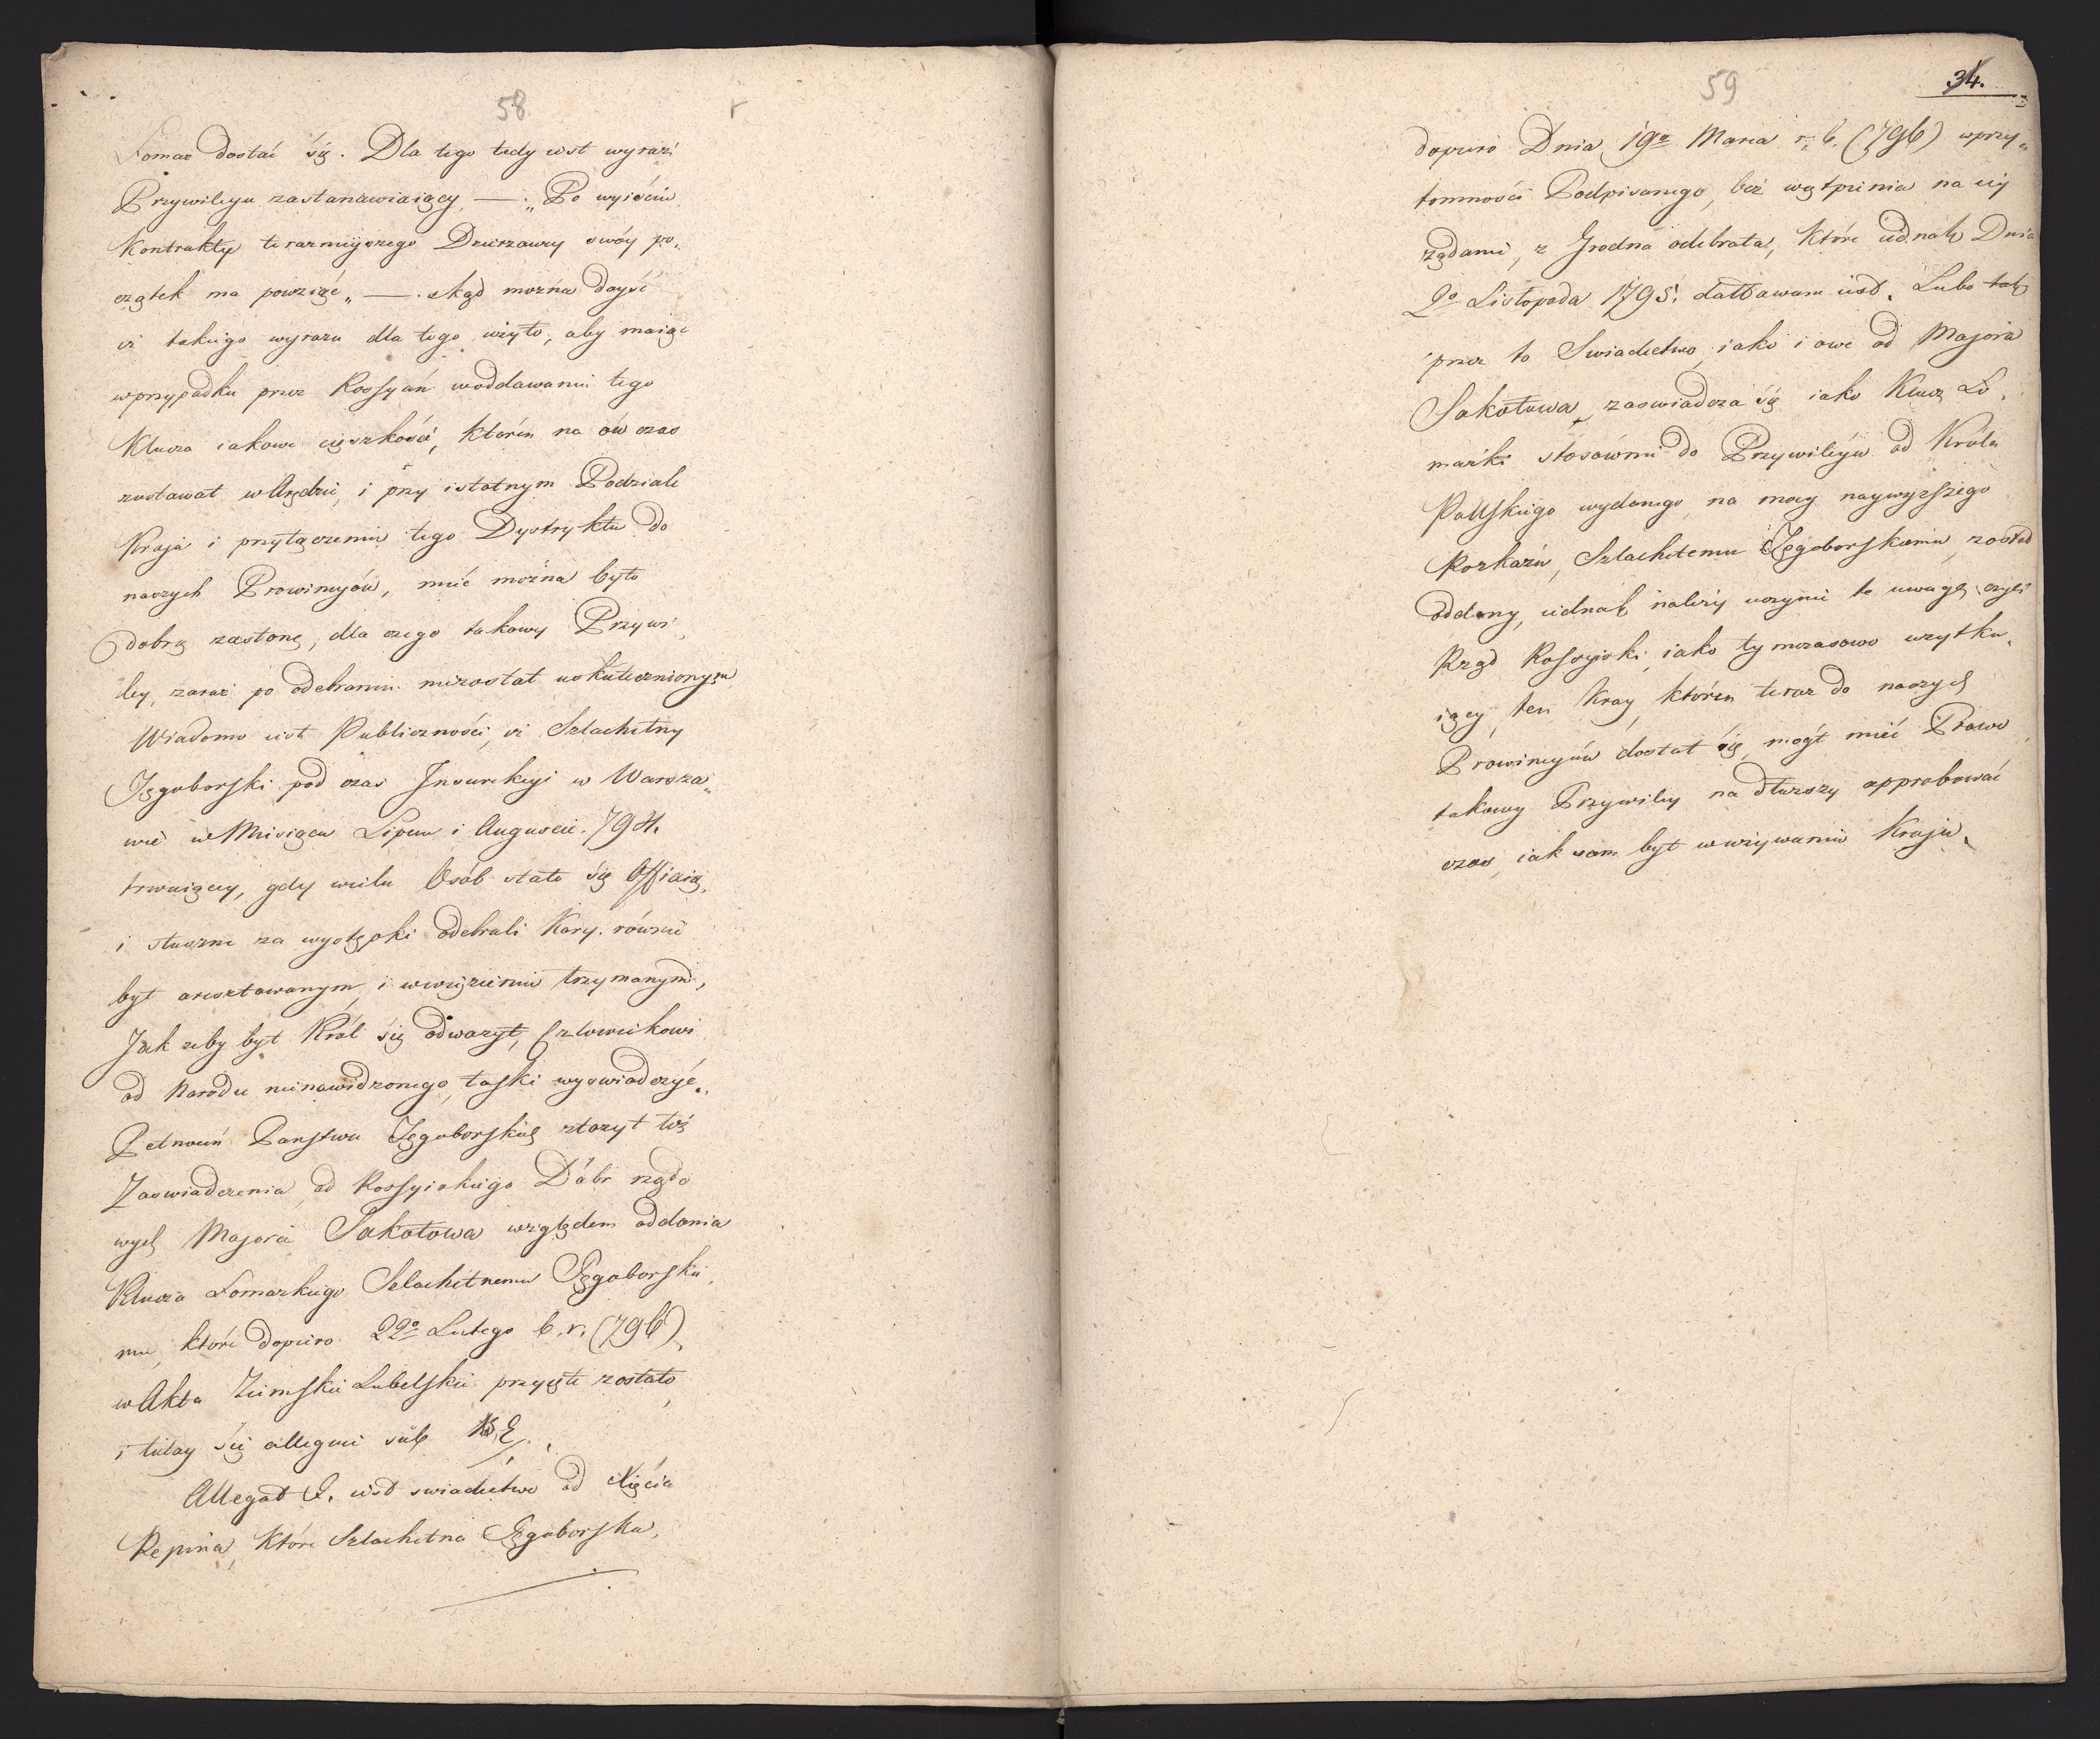 58
Łomaz dostać się. Dla tego tedy iest wyraz
Przywileyu zastanawiaiący —. „Po wyiściu
Kontraktu terazniyszego Dzierzawy swóy po„
czątek ma powziąć„ —. skąd można doyść
iż takiego wyrazu dla tego użyto, aby maiąc
w przypadku przez Rossyan woddawaniu tego
Klucza iakowe cięszkości, którén na ów czas
zostawał w Arędzie, i przy istotnym Podziale
Kraju i przyłączeniu tego Dystryktu do
naszych Prowincyów, mieć można było
dobrą zasłonę, dla czego takowy Przywi„
ley, zaraz po odebraniu niezostał uskutecznionym
Wiadomo iest Publiczności, iż Szlachetny
Ięgoborski pod czas Insurekcyi w Warsza„
wie w Miesiącu Lipcu i Auguscie. 794.
trwaiącey, gdy wielu Osób stało się Offiarą,
i słuszne za występki odebrali Kary. równie
był aresztowanym, i w więzieniu trzymanym,
Jak żeby był Król się odważył, Człowiekowi
od Narodu nienawidzonego, łaski wyswiadczyć„
Pełnomń Panstwa Ięgoborskich złożył też
Zaswiadczenia od Rossyiskiego Dóbr rządo
wych Majora Sakołowa względem oddania
Klucza Łomazkiego Szlachetnemu Ięgoborskie„
mu, które dopiero 22º Lutego b. r. (796)
w Akta Ziemskie Lubelskie przyięte zostało,
i tutay się alleguie sub E/.
Allegat E. iest swiadectwo od Xięcia
Repina, które Szlachetna Ięgoborska,
59
34.
dopiero Dnia 19º Marca r. b. (796) w przy„
tomności Podpisanego, bez wątpienia na iey
żądanie, z Grodna odebrała, które iednak Dnia
2º Listopada 1795. dattowane iest. Lubo tak
przez to Swiadectwo, iako i owe od Majora
Sakołowa, zaswiadcza się iako Klucz Ło„
mazki stosównie do Przywileyu od Króla
Pollskiego wydanego, na mocy naywyższego
Rozkazu, Szlachetemu Ięgoborskiemu, został
oddany, iednak należy uczynić te uwagę, czyli
Rząd Rossyiski, iako tymczasowo uzytku„
iący, ten Kray, którén teraz do naszych
Prowincyów dostał się, mógł mieć Prawo
takowy Przywiley na dłuższy approbować
czas, iak sam był w używaniu Kraju.